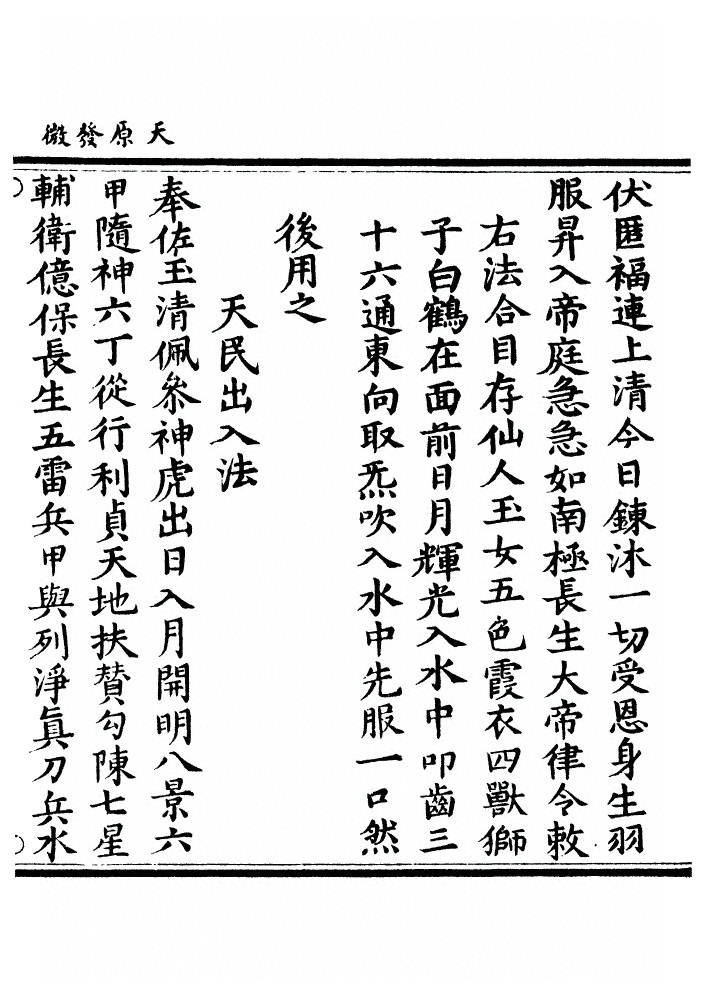 天原發微
伏匿福連上清今日鍊沐一切受恩身生羽
服昇入帝庭急急如南極長生大帝律令敕
右法合目存仙人玉女五色霞衣四獸獅
子白鶴在面前日月輝光入水中叩齒三
十六通東向取炁吹入水中先服一口然
後用之
天民出入法
奉佐玉清佩叅神虎出日入月開明八景六
甲隨神六丁從行利貞天地扶賛勾陳七星
輔衛億保長生五雷兵甲與列淨真刀兵水